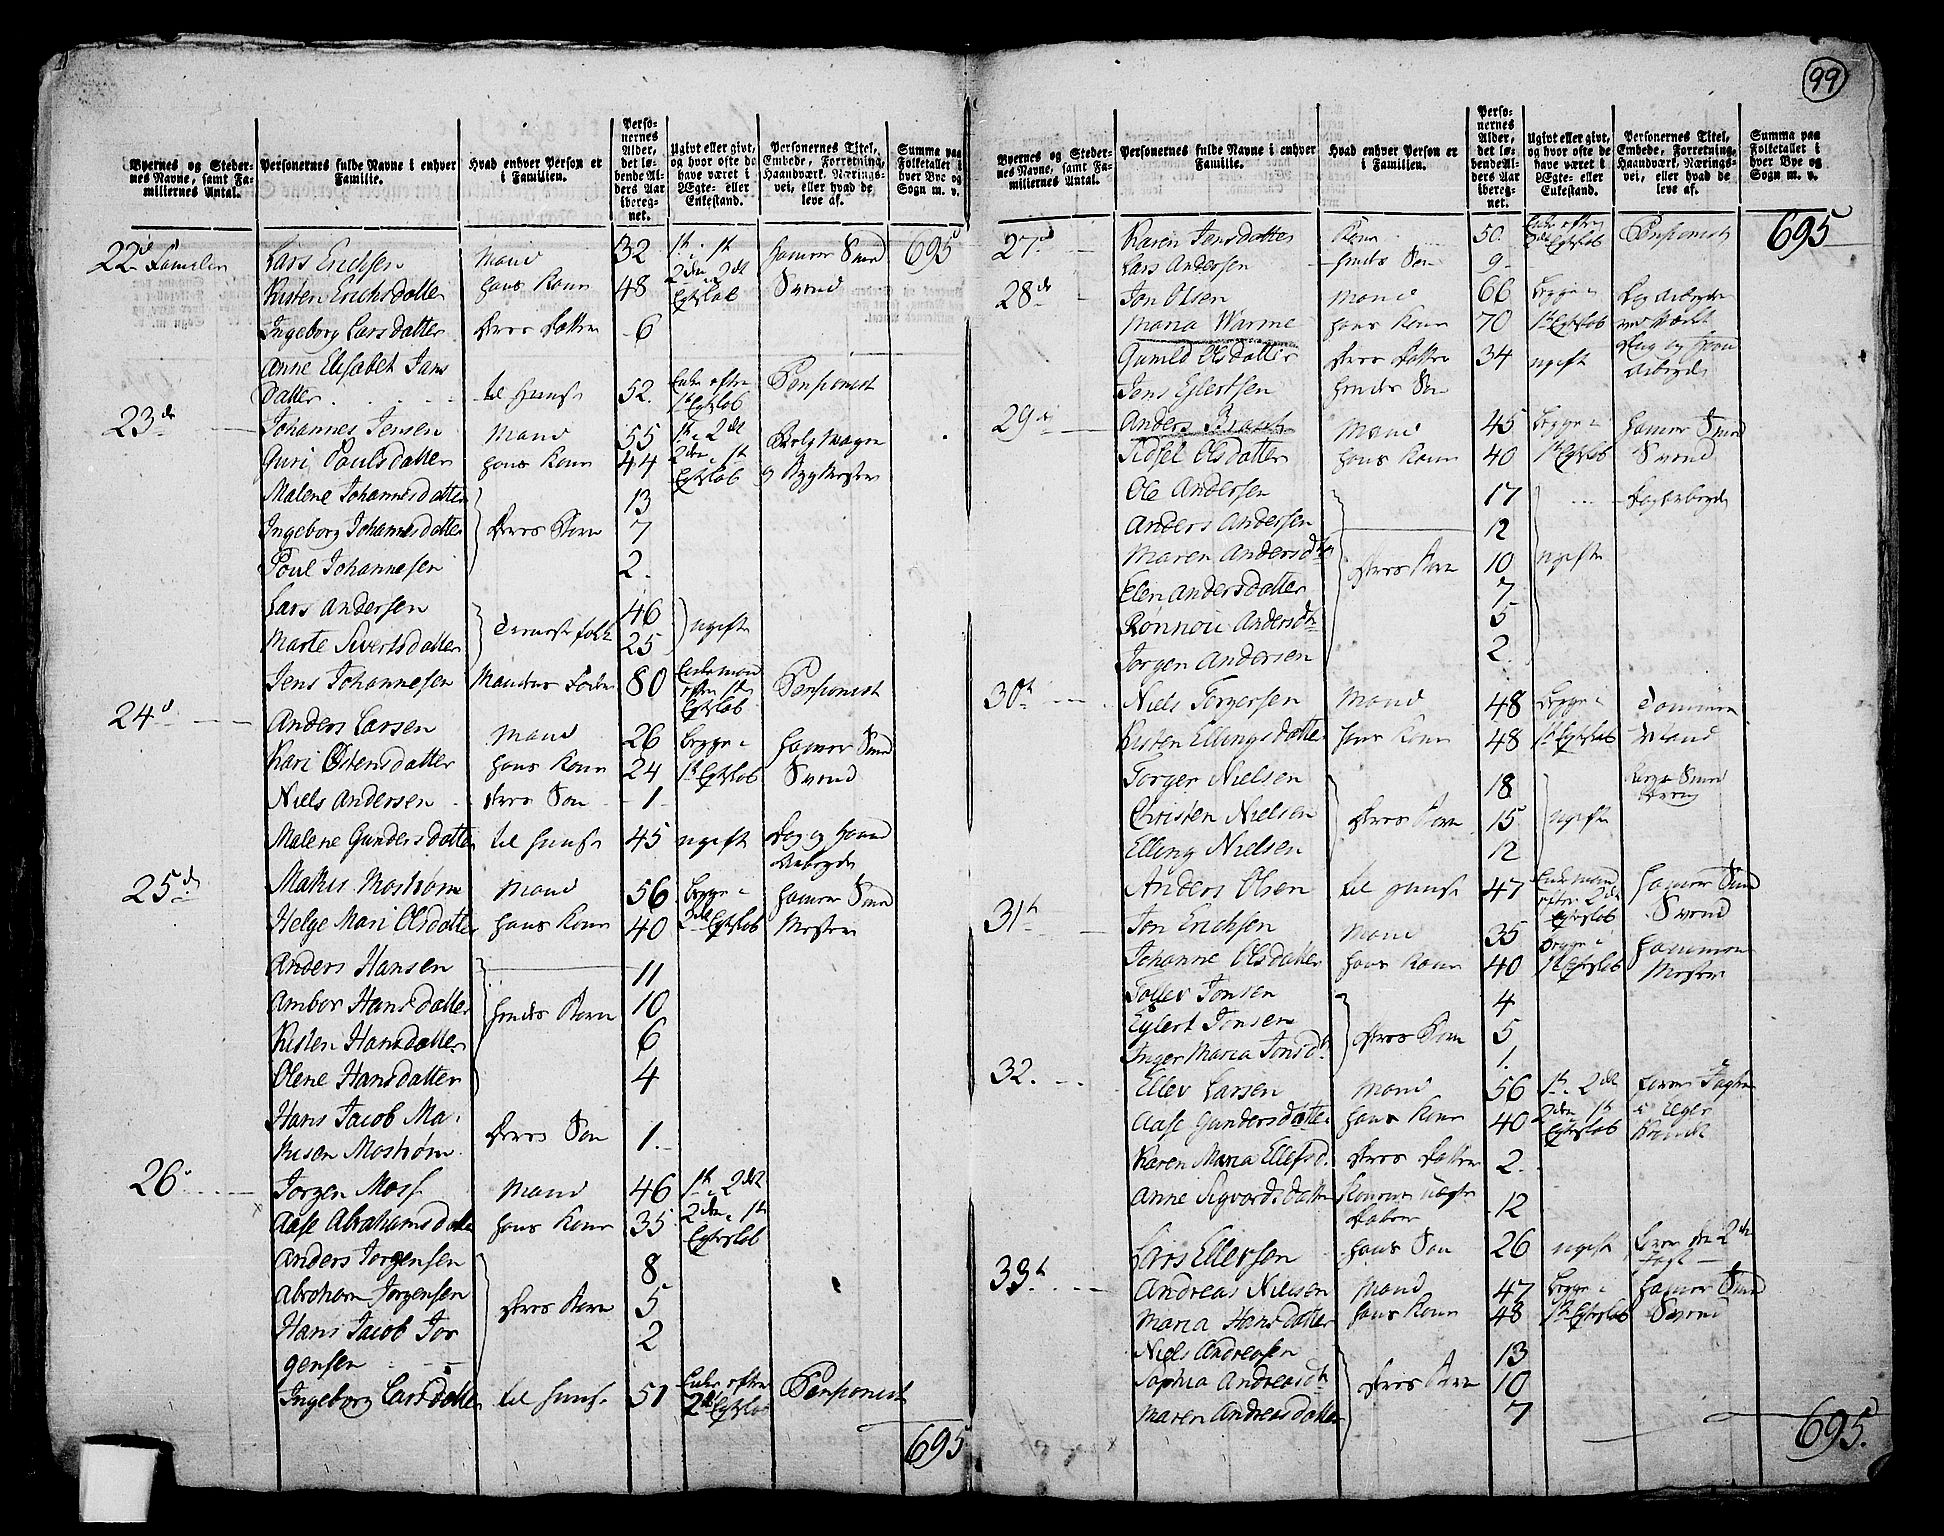 99
Byernes og Steder- nes Navne, samt Fa- miliernes Antal. Personernes fulde Navne i enhver Familie. Hvad enhver Person er i Familien. Perso- nernes Alder, det lø- bende Al- ders Aar ibereg- net. Ugivt eller givt, og hvor ofte de have været i Ægte- eller Enkestand. Personernes Titel, Embede, Forretning, Haandværk, Nærings- vei, eller hvad de leve af. Summa paa Folketallet i hver Bye og Sogn m. v.
22de Familie Lars Erichsen Mand 32 1te i 1te Hamer Smed 695
Kisten Erichsdatter hans Kone 48 2den i 2det Egteskab Svend
Ingeborg Larsdatter Deres Datter 6
Anne Elisabet Jans
Datter til Huuse 52. Enke efter 1te Egteskab Pensionist
23de Johannes Jensen Mand 55 1te i 2det Belgmager
Guri Poulsdatter hans Kone 44 2den i 1te Egteskab og Bygmester
Malene Johannesdatter 13
Ingeborg Johannesdatter Deres Børn 7
Poul Johannesen 2.
Lars Andersen 46
Marte Sivertsdatter Tieneste folk 25 ugifte
Jens Johannesen Mandens Fader 80 Enkemand efter 1te Egteskab Pensionist
24d Anders Larsen Mand 26 begge i Hamer Smed
Kari Ostensdatter hans Kone 24 1te Egteskab Svend
Niels Andersen deres Søn 1
Malene Gundersdatter til Huuse 45 ugift Dag og Haand Arbeyde
25de Makus Mostrøm Mand 56 begge i Hamer Smed
Helge Mari Olsdatter hans Kone 40 2det Egteskab Mester
Anders Hansen 11
Ambor Hansdatter hendes Børn 10
Kisten Hansdatter 6
Olene Hansdatter 4
Hans Jacob Ma-
kusen Mostrøm Deres Søn 1.
26 Jorgen Moss Mand 46 1te i 2det
Aase Abrahamsdatter hans Kone 35 2den i 1te Egteskab
Anders Jorgensen 8
Abraham Jorgensen Deres Børn 5
Hans Jacob Jor 2
gensen
Ingeborg Larsdatter til Huuse 51 Enke efter 2det Egteskab Pensionist
695
Byernes og Steder- nes Navne, samt Fa- miliernes Antal. Personernes fulde Navne i enhver Familie. Hvad enhver Person er i Familien. Perso- nernes Alder, det lø- bende Al- ders Aar ibereg- net. Ugivt eller givt, og hvor ofte de have været i Ægte- eller Enkestand. Personernes Titel, Embede, Forretning, Haandværk, Nærings- vei, eller hvad de leve af. Summa paa Folketallet i hver Bye og Sogn m. v.
27d Karen Jansdatter Kone 50. Enke efter 2det Egteskab Pensionist 695
Lars Andersen hendes Søn 9
28de Jon Olsen Mand 66 begge i Dag Arbeyder
Maria Warme hans Kone 70 1te Egteskab
Gunild Olsdatter Deres Datter 34 ugift Dag og Haand Arbeyde
Jens Eylertsen hendes Søn
29de Anders Brasch Mand 45 begge i Hamer Smed
Sidsel Olsdatter hans Kone 40 1te Egteskab Svend
Ole Andersen 17 Dagarbeyde
Anders Andersen 12
Maren Andersdtr Deres Børn 10 ugifte
Elen Andersdatter 7
Rønnou Andersdtr 5
Jorgen Andersen 2.
30te Niels Torgersen Mand 48 begge i Tømmer
Kisten Ellingsdatter hans Kone 48 1te Egteskab Mand
Torger Nielsen 18 Smed Dreng
Christen Nielsen Deres Børn 15 ugifte
Elling Nielsen 12
Anders Olsen til Huuse 47 Enkemand efter 2det Egteskab Hamer Smed Svend
31te Jon Erichsen Mand 35 begge i Hammer
Johanne Olsdatter hans Kone 40 1te Egteskab Mester
Tollev Jonsen 4
Eylert Jonsen Deres Børn 5
Inger Maria Jonsdr 1.
32. Ellev Larsen Mand 56 1te i 2det
Aase Gundersdatter hans Kone 40 2den i 1te Egteskab
Karen Maria Ellefsd. Deres Datter 2.
Anne Sigvardsdatter 12
Lars Ellevsen hans Søn 26 ugift
33te Andreas Nielsen Mand 47 begge i Hamer Smed
Maria Hansdatter hans Kone 48 1te Egteskab Svend
Niels Andreasen 13
Sophia Andreasdtr Deres Børn 10
Maren Andreasdatter 7
695.